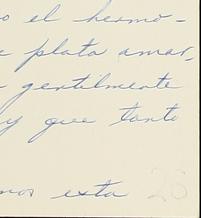 o el hermo-
e plata amar,
gentilmente
y que tanto
mos esta
26